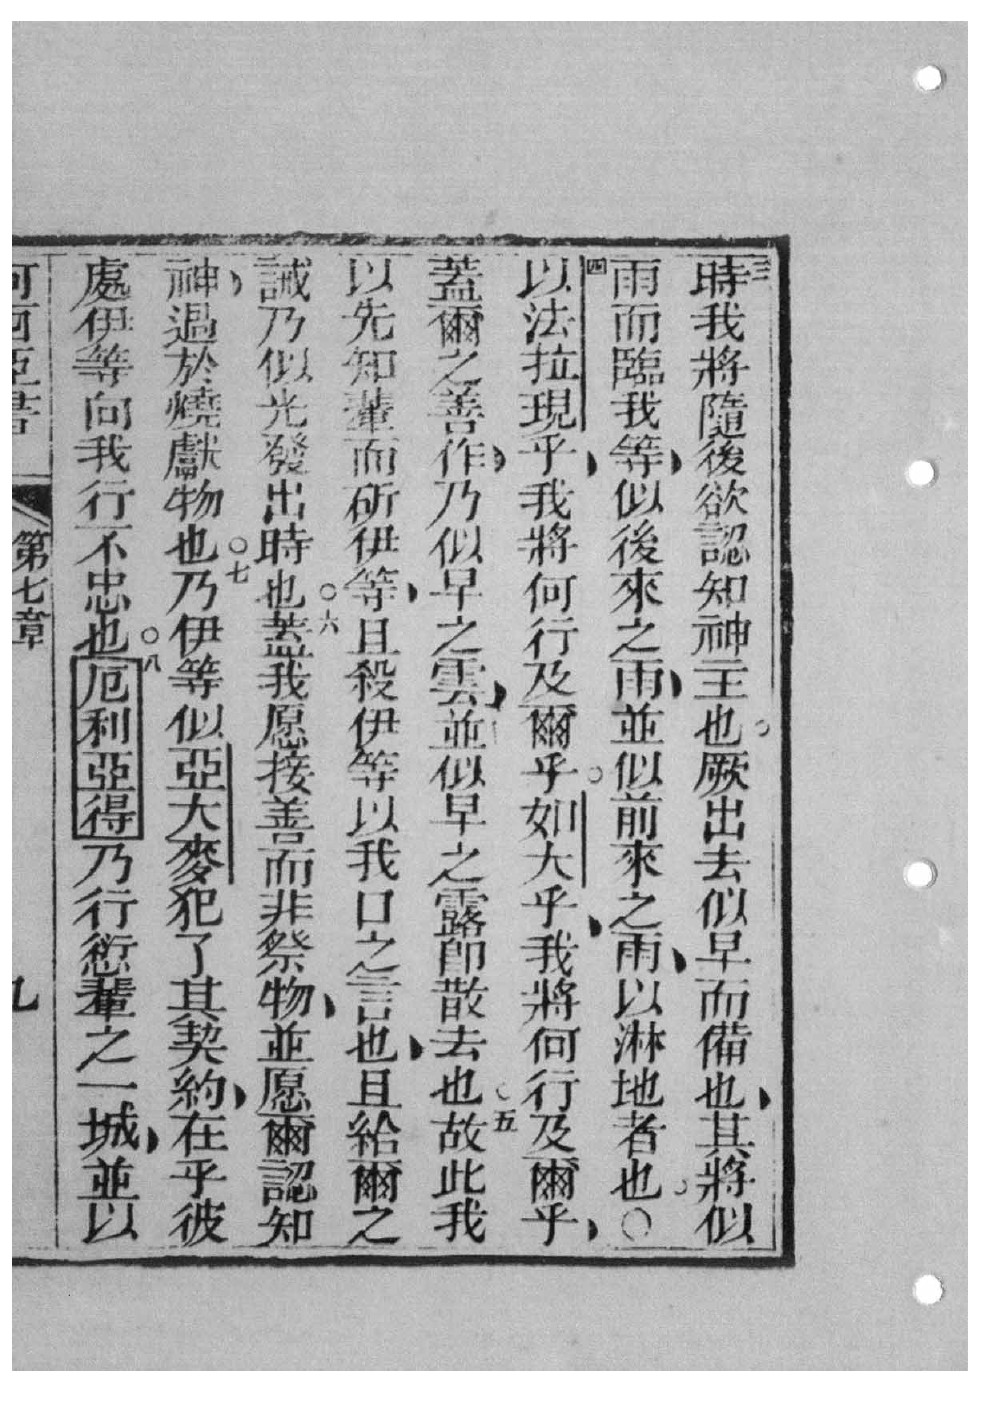 三時我將隨後欲認知神主也。厥出去似早而備也、其將似
雨而臨我等、似後來之雨、並似前來之雨、以淋地者也。〇
四以法拉現乎、我將何行及爾乎。如大乎、我將何行及爾乎、
蓋爾之善作、乃似早之雲、並似早之露即散去也。五故此我
以先知輩而斫伊等、且殺伊等以我口之言也、且給爾之
誡乃似光發出時也。六蓋我愿接善而非祭物、並愿爾認知
神、過於燒獻物也。七乃伊等似亞大麥犯了其契約、在乎彼
處伊等向我行不忠也。八厄利亞得乃行愆輩之一城、並以
何西亞書 第七章 九